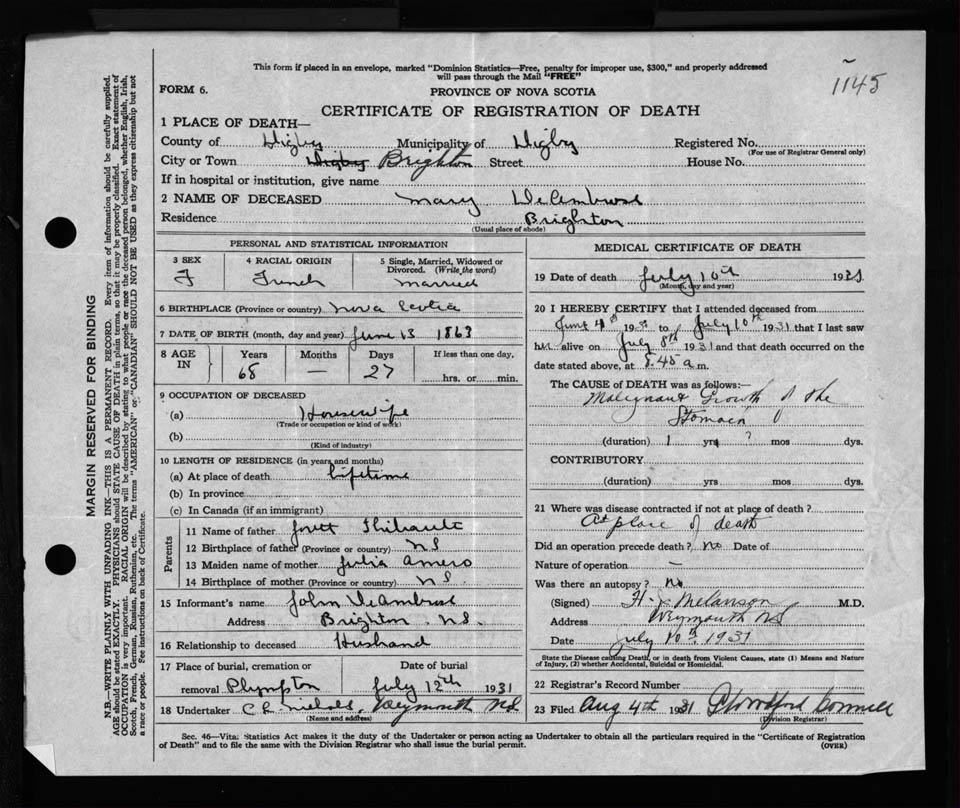 This form if placed in an envelope, marked "Dominion Statistics—Free, penalty for improper use, $300," and properly addressed
will pass through the Mail "FREE"
1145
FORM 6.
PROVINCE OF NOVA SCOTIA
CERTIFICATE OF REGISTRATION OF DEATH
1 PLACE OF DEATH—
County of Digby Municipality of Digby Registered No.
(For use of Registrar General only)
City or Town Digby Brighton Street House No.
If in hospital or institution, give name
2 NAME OF DECEASED Mary DeAmbrose
Residence Brighton
(Usual place of abode)
PERSONAL AND STATISTICAL INFORMATION
3 SEX 4 RACIAL ORIGIN 5 Single, Married, Widowed or
Divorced. (Write the word)
F French married
6 BIRTHPLACE (Province or country) Nova Scotia
7 DATE OF BIRTH (month, day and year) June 13 1863
8 AGE IN Years Months Days If less than one day,
68 — 27 hrs. or min.
9 OCCUPATION OF DECEASED
(a) Housewife
(Trade or occupation or kind of work)
(b)
(Kind of industry)
10 LENGTH OF RESIDENCE (in years and months)
(a) At place of death lifetime
(b) In province
(c) In Canada (if an immigrant)
Parents
11 Name of father Thibault
12 Birthplace of father (Province or country) N.S
13 Maiden name of mother Julia Amero
14 Birthplace of mother (Province or country) N.S.
15 Informant's name John DeAmbrose
Address Brighton N.S.
16 Relationship to deceased Husband
17 Place of burial, cremation or Date of burial
removal Plympton July 12th 1931
18 Undertaker Weymouth NS
(Name and address)
MEDICAL CERTIFICATE OF DEATH
19 Date of death July 10th 1931
(Month, day and year)
20 I HEREBY CERTIFY that I attended deceased from
June 4th 19 to July 10th 1931 that I last saw
her alive on July 8th 1931 and that death occurred on the
date stated above, at 8.45 a m.
The CAUSE of DEATH was as follows:—
Malignant Growth of the
Stomach
(duration) 1 yrs ? mos dys.
CONTRIBUTORY
(duration) yrs mos dys.
21 Where was disease contracted if not at place of death ?
At place of death
Did an operation precede death? no Date of
Nature of operation —
Was there an autopsy ? no
(Signed) H. J. Melanson M.D.
Address Weymouth NS
Date July 10th 1931
State the Disease causing Death, or in death from Violent Causes, state (1) Means and Nature
of Injury, (2) whether Accidental, Suicidal or Homicidal.
22 Registrar's Record Number
23 Filed Aug 4th 1931
(Division Registrar)
Sec. 46—Vital Statistics Act makes it the duty of the Undertaker or person acting as Undertaker to obtain all the particulars required in the "Certificate of Registration
of Death" and to file the same with the Division Registrar who shall issue the burial permit. (OVER)
MARGIN RESERVED FOR BINDING
N.B.—WRITE PLAINLY WITH UNFADING INK—THIS IS A PERMANENT RECORD. Every item of information should be carefully supplied.
AGE should be stated EXACTLY. PHYSICIANS should STATE CAUSE OF DEATH in plain terms, so that it may be properly classified. Exact statement of
OCCUPATION is very important. RACIAL ORIGIN will be described by stating to what people or race the deceased person belonged, whether English, Irish,
Scotch, French, German, Russian, Ruthenian, etc. The terms "AMERICAN" or "CANADIAN" SHOULD NOT BE USED as they express citizenship but not
a race or people. Fee instructions on back of Certificate.